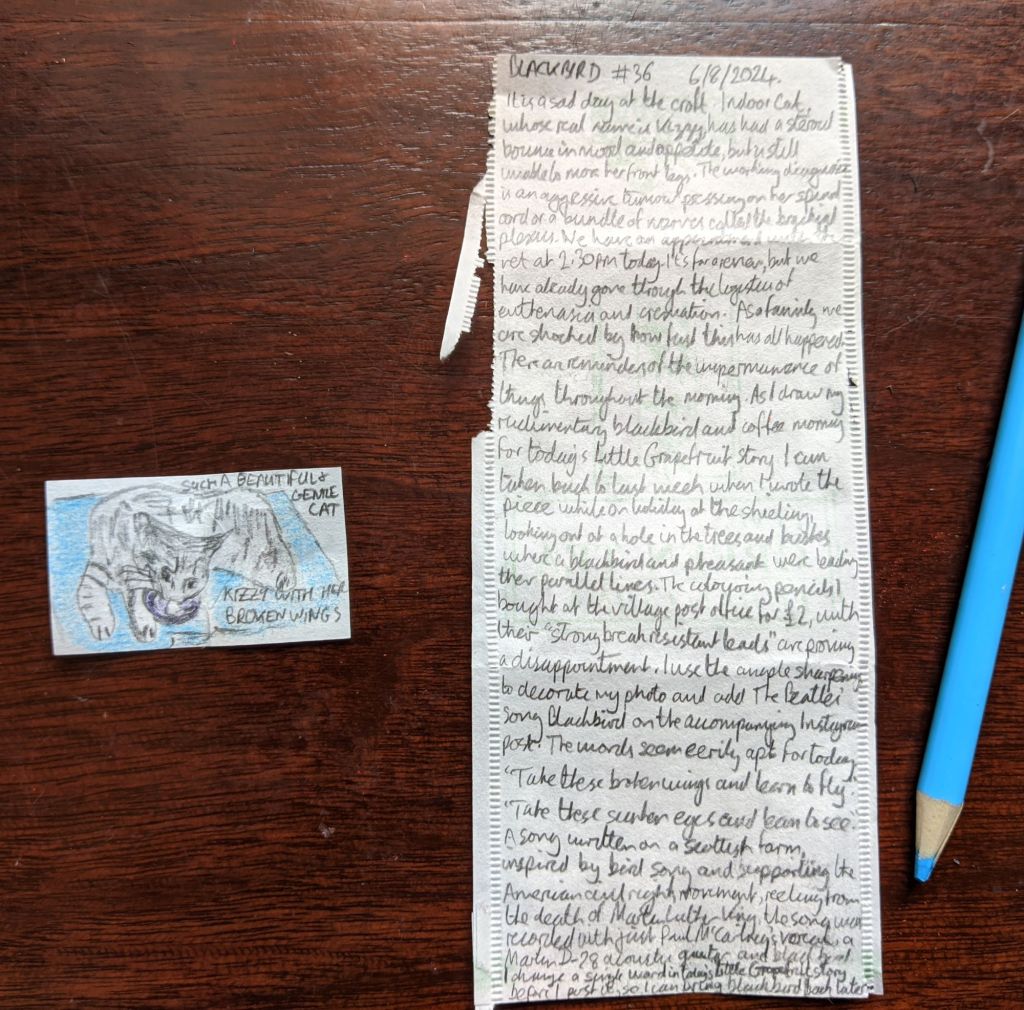 SUCH A BEAUTIFUL &
GENTLE
CAT
KIZZY WITH HER
BROKEN WINGS
BLACKBIRD #36 6/8/2024.
It is a sad day at the croft. Indoor Cat,
whose real name is Kizzy, has had a steroid
bounce in mood and appetite, but is still
unable to move her front legs. The working diagnosis
is an aggressive tumour pressing on her spinal
cord or a bundle of nerves called the brachial
plexus. We have an
vet at 2:30pm today. It's for a review, but we
have already gone through the logistics of
and cremation. As a family we
are shocked by how fast this has all happened.
There are reminders of the impermanence of
things throughout the morning. As I draw my
rudimentary blackbird and coffee morning
for today's Little Grapefruit story I am
taken back to last week when I wrote the
piece while on holiday at the shieling,
looking out at a hole in the trees and bushes
where a blackbird and pheasant were leading
their parallel lines. The colouring pencils I
bought at the village post office for £2, with
their "strong break resistant leads" are proving
a disappointment. I use the ample sharpenings
to decorate my photo and add The Beatles
song Blackbird on the accompanying Instagram
post. The words seem eerily apt for today
"Take these broken wings and learn to fly"
"Take these sunken eyes and learn to see."
A song written on a Scottish farm,
inspired by bird song and supporting the
American civil rights movement, reeling from
the death of Martin Luther King, the song was
recorded with just Paul McCartney's vocal, a
Martin D-28 acoustic guitar and
I change a single word in today's Little Grapefruit story
before I post it, so I can bring blackbird back later